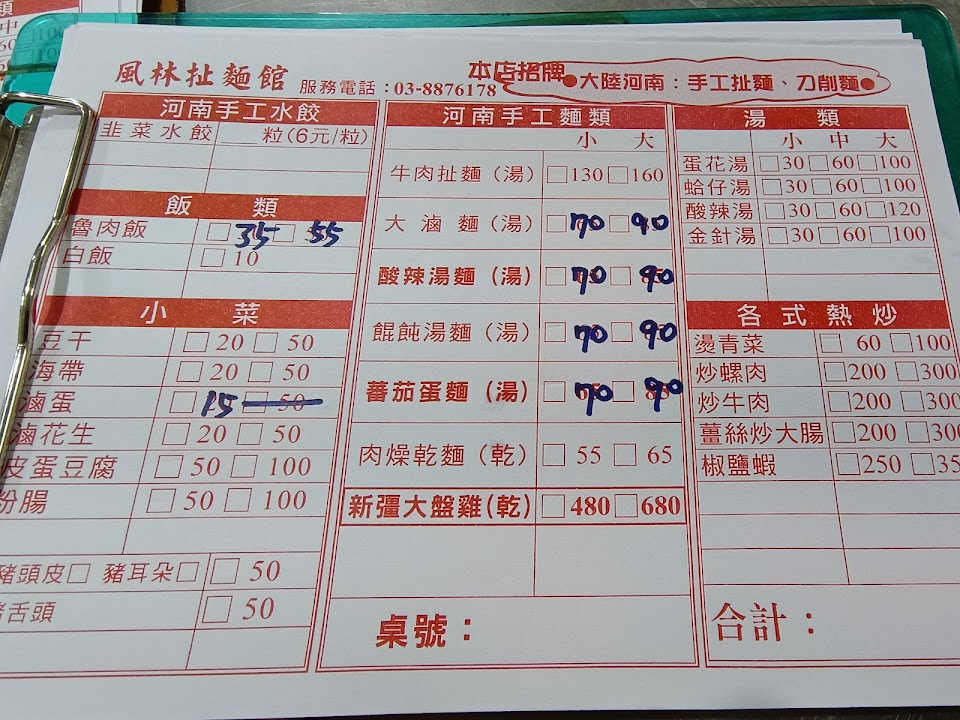 風林扯麵館 服務電話：03-8876178 本店招牌 ●大陸河南：手工扯麵、刀削麵●
河南手工水餃
韭菜水餃 ___粒(6元/粒)
飯 類
魯肉飯 □35 □55
白飯 □10
小 菜
豆干 □20 □50
海帶 □20 □50
滷蛋 □15 □50
滷花生 □20 □50
皮蛋豆腐 □50 □100
粉腸 □50 □100
豬頭皮□ 豬耳朵□ □50
豬舌頭 □50
河南手工麵類
小 大
牛肉扯麵（湯） □130 □160
大滷麵（湯） □70 □90
酸辣湯麵（湯） □70 □90
餛飩湯麵（湯） □70 □90
蕃茄蛋麵（湯） □70 □90
肉燥乾麵（乾） □55 □65
新疆大盤雞(乾) □480 □680
桌號：
湯 類
小 中 大
蛋花湯 □30 □60 □100
蛤仔湯 □30 □60 □100
酸辣湯 □30 □60 □120
金針湯 □30 □60 □100
各式熱炒
燙青菜 □60 □100
炒螺肉 □200 □300
炒牛肉 □200 □300
薑絲炒大腸 □200 □300
椒鹽蝦 □250 □35
合計：